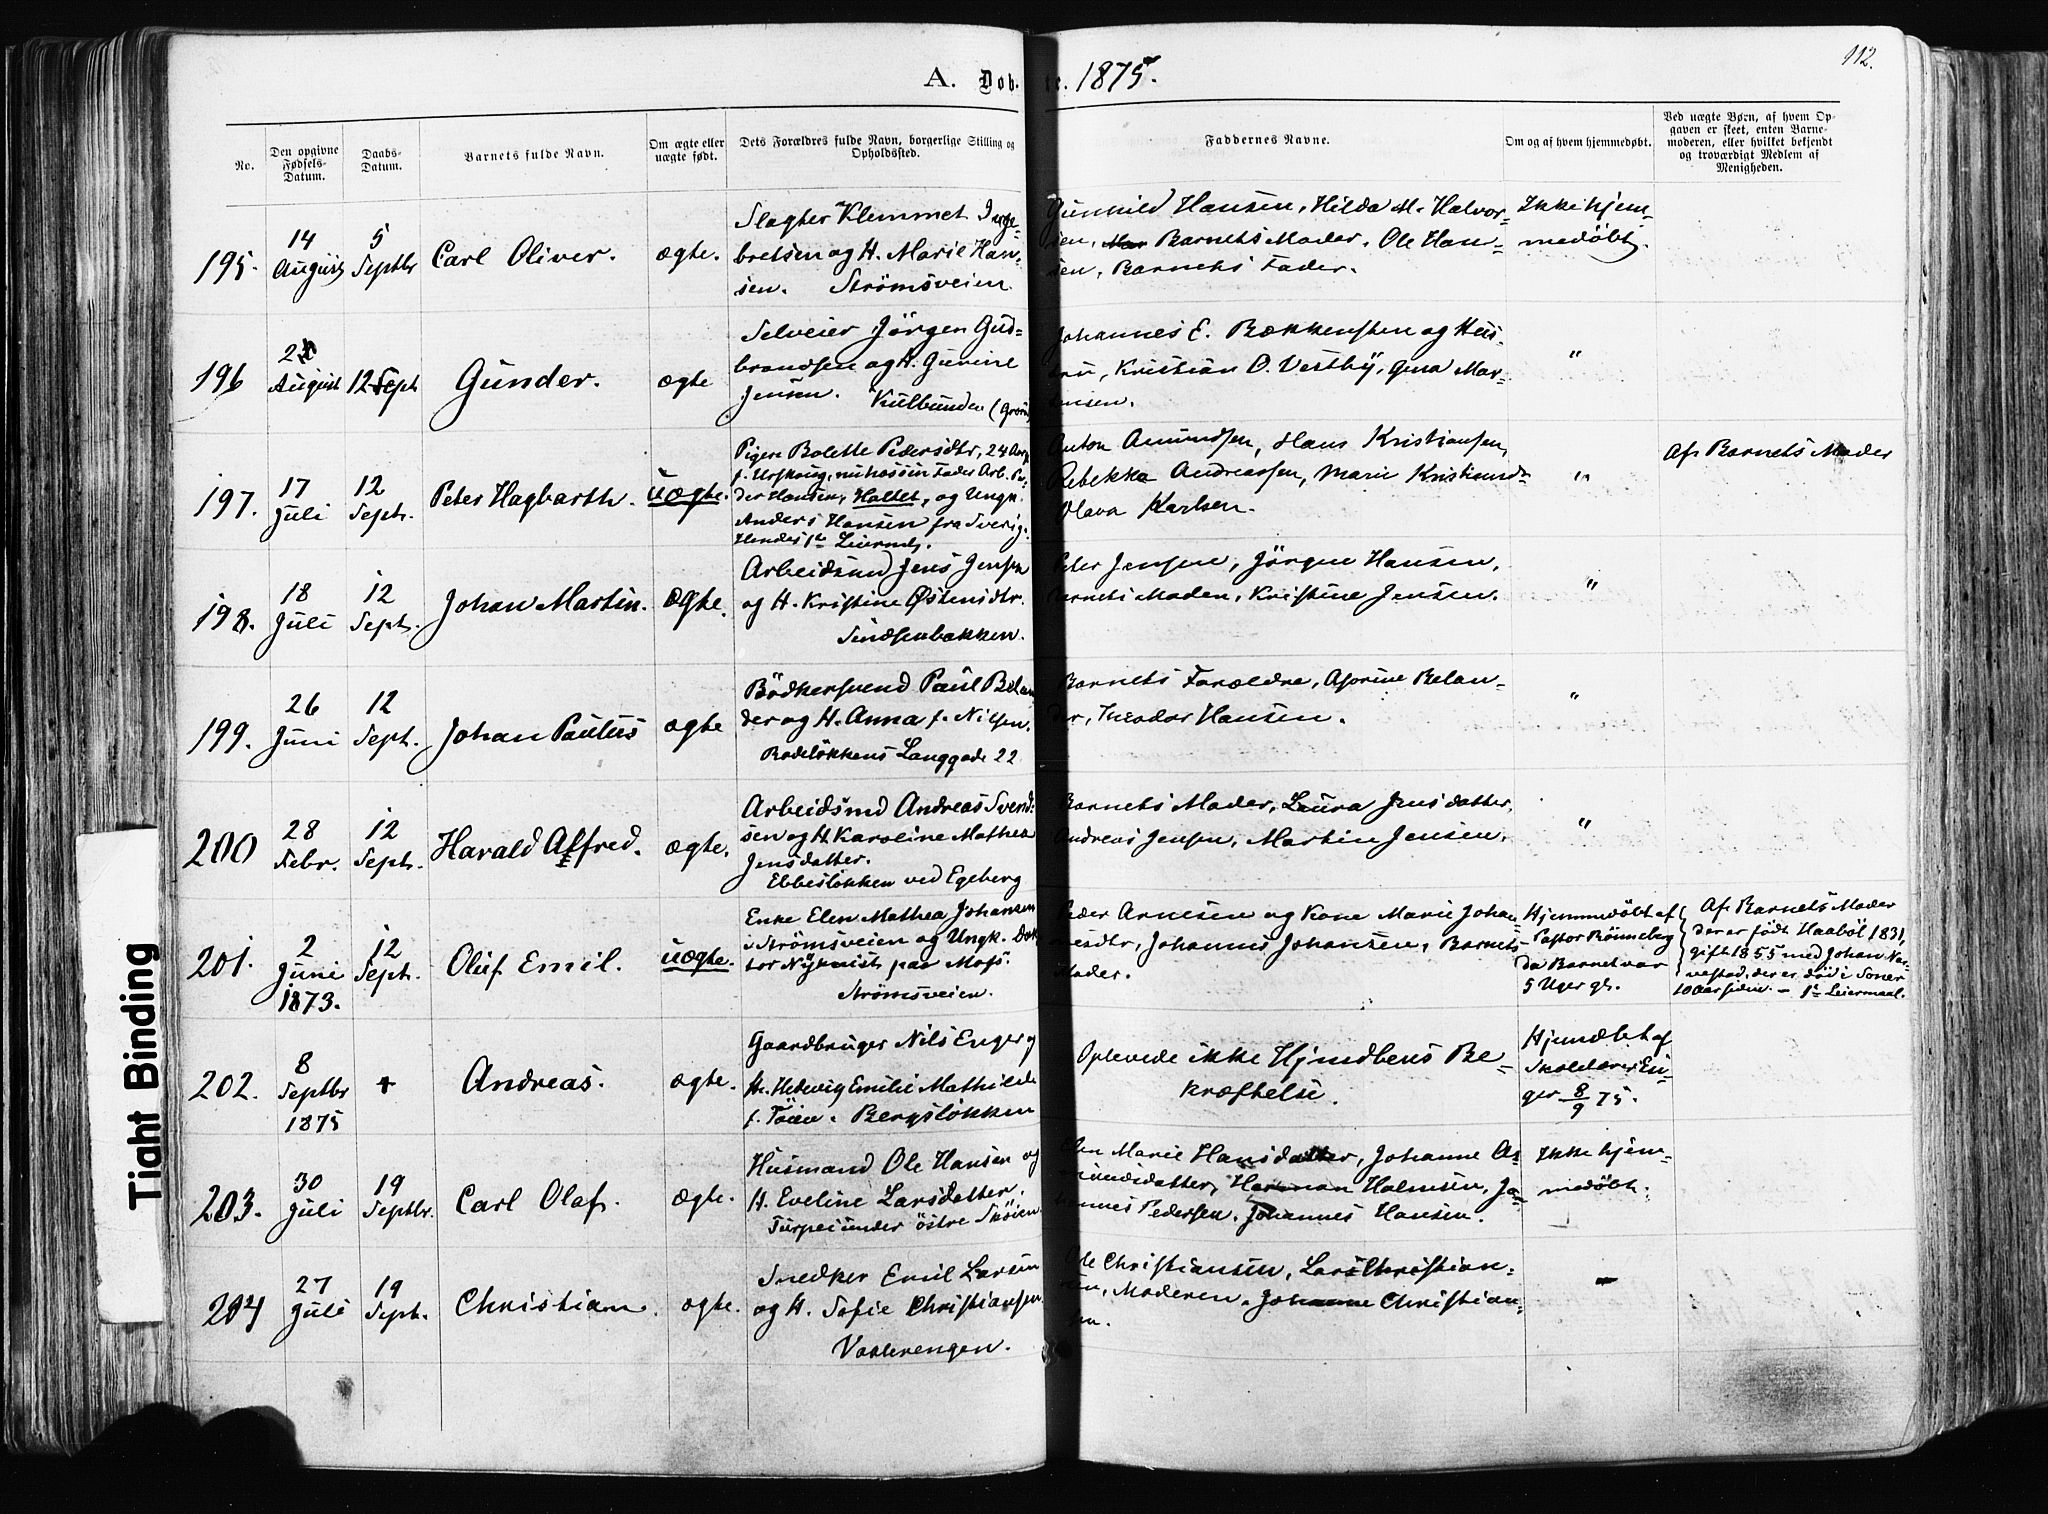 112.
A. Døb. te. 1875.
No.
Den opgivne Fødsels-Datum.
Daabs-Datum.
Barnets fulde Navn.
Om ægte eller uægte født.
Dets Forældres fulde Navn, borgerlige Stilling og Opholdssted.
Faddernes Navne.
Om og af hvem hjemmedøbt.
Ved uægte Børn, af hvem Op-
gaven er skeet, enten Barne-
moderen, eller hvilket bekjendt
og troværdigt Medlem af
Menigheden.
195. 14 August 5 Septbr Carl Oliver. ægte.
Slagter Klemmet Inge-
bretsen og H. Marie Han-
sen. Strömsveien
Gunhild Hansen, Hilda M. Halvor-
sen, Barnets Moder, Ole Han-
sen, Barnets Fader.
Ikke hjem-
medöbt.
196 August 12 Sept Gunder. ægte
Selveier Jörgen Gud-
brandsen og H. Gurine
Jensen. Kulbunden
Johannes E. Bækkensten og Hus-
tru, Kristian O. Vestby, Gina Mar-
"
197. 17 Juli 12 Sept. Peter Hagbarth. uægte.
Pigen Bolette Pedersdtr, 24 Aar,
f. Urskoug, nu hos sin Fader Arb. Pe-
der Hansen, Haltet, og Ungk.
Anders Hansen fra Sverig.
Hendes 1te Leierm.
Anton Amundsen, Hans Kristiansen,
Rebekka Andreassen, Marie Kristiansd
Olava Karlsen.
"
Af Barnets Moder
198. 18 Juli 12 Sept. Johan Martin. ægte.
Arbeidsmd Jens Jensen
og H. Kristine Østensdtr.
Sinsenbakken.
Peter Jensen, Jörgen Hansen,
Barnets Moder, Kristine Jensen.
"
199. 26 Juni 12 Sept. Johan Paulus ægte
Bödkersvend Paul Belan
der og H. Anna f. Nilsen.
Rodelökkens Langgade 22
Barnets Forældre, Asorine Belan-
der, Theodor Hansen.
"
200 28 Febr. 12 Sept. Harald Alfred. ægte.
Arbeidsmd Andreas Svend-
sen og H Karoline Mathea
Jensdatter.
Ebbeslökken ved Egeberg
Barnets Moder, Laura Jensdatter,
Andreas Jensen, Martin Jensen.
"
201. 2 Juni 1873. 12 Sept. Oluf Emil. uægte.
Enke Elen Mathea Johansen
i Strömsveien og Ungk. Dok
tor Nyquist paa Moss.
Strömsveien.
Peder Arnesen og Kone Marie Johan
nesdtr, Johannes Johansen, Barnets
Moder.
Hjemmedöbt af
Pastor Rönneberg
da Barnet var
5 Uger gl.
Af Barnets Moder
der er født Haaböl 1831,
gift 1855 med Johan Nar-
vestad, der er död i Soner
10 Aar siden. – 1te Leiermaal.
202. 8 Septbr 1875 + Andreas. ægte.
Gaardbruger Nils Enger og
H. Hedevig Emilie Mathilde
f. Töien. Bergslökken
Oplevede ikke Hjmdbens Be-
kræftelse.
Hjemdbt af
Skolelærer En-
ger 8/9 75.
203. 30 Juli 19 Septbr. Carl Olaf. ægte.
Husmand Ole Hansen og
H. Eveline Larsdatter.
under östre Sköien
Elen Marie Hansdatter, Johanne As-
mundsdatter, Herman Holmsen, Jo-
hannes Pedersen, Johannes Hansen.
Ikke hjem-
medöbt.
204 27 Juli 19 Sept. Christian. ægte.
Snedker Emil Larsen
og H. Sofie Christiansen
Vaalerengen.
Ole Christiansen, Lars Christian-
sen, Moderen, Johanne Christian-
sen.
–
Tight Binding